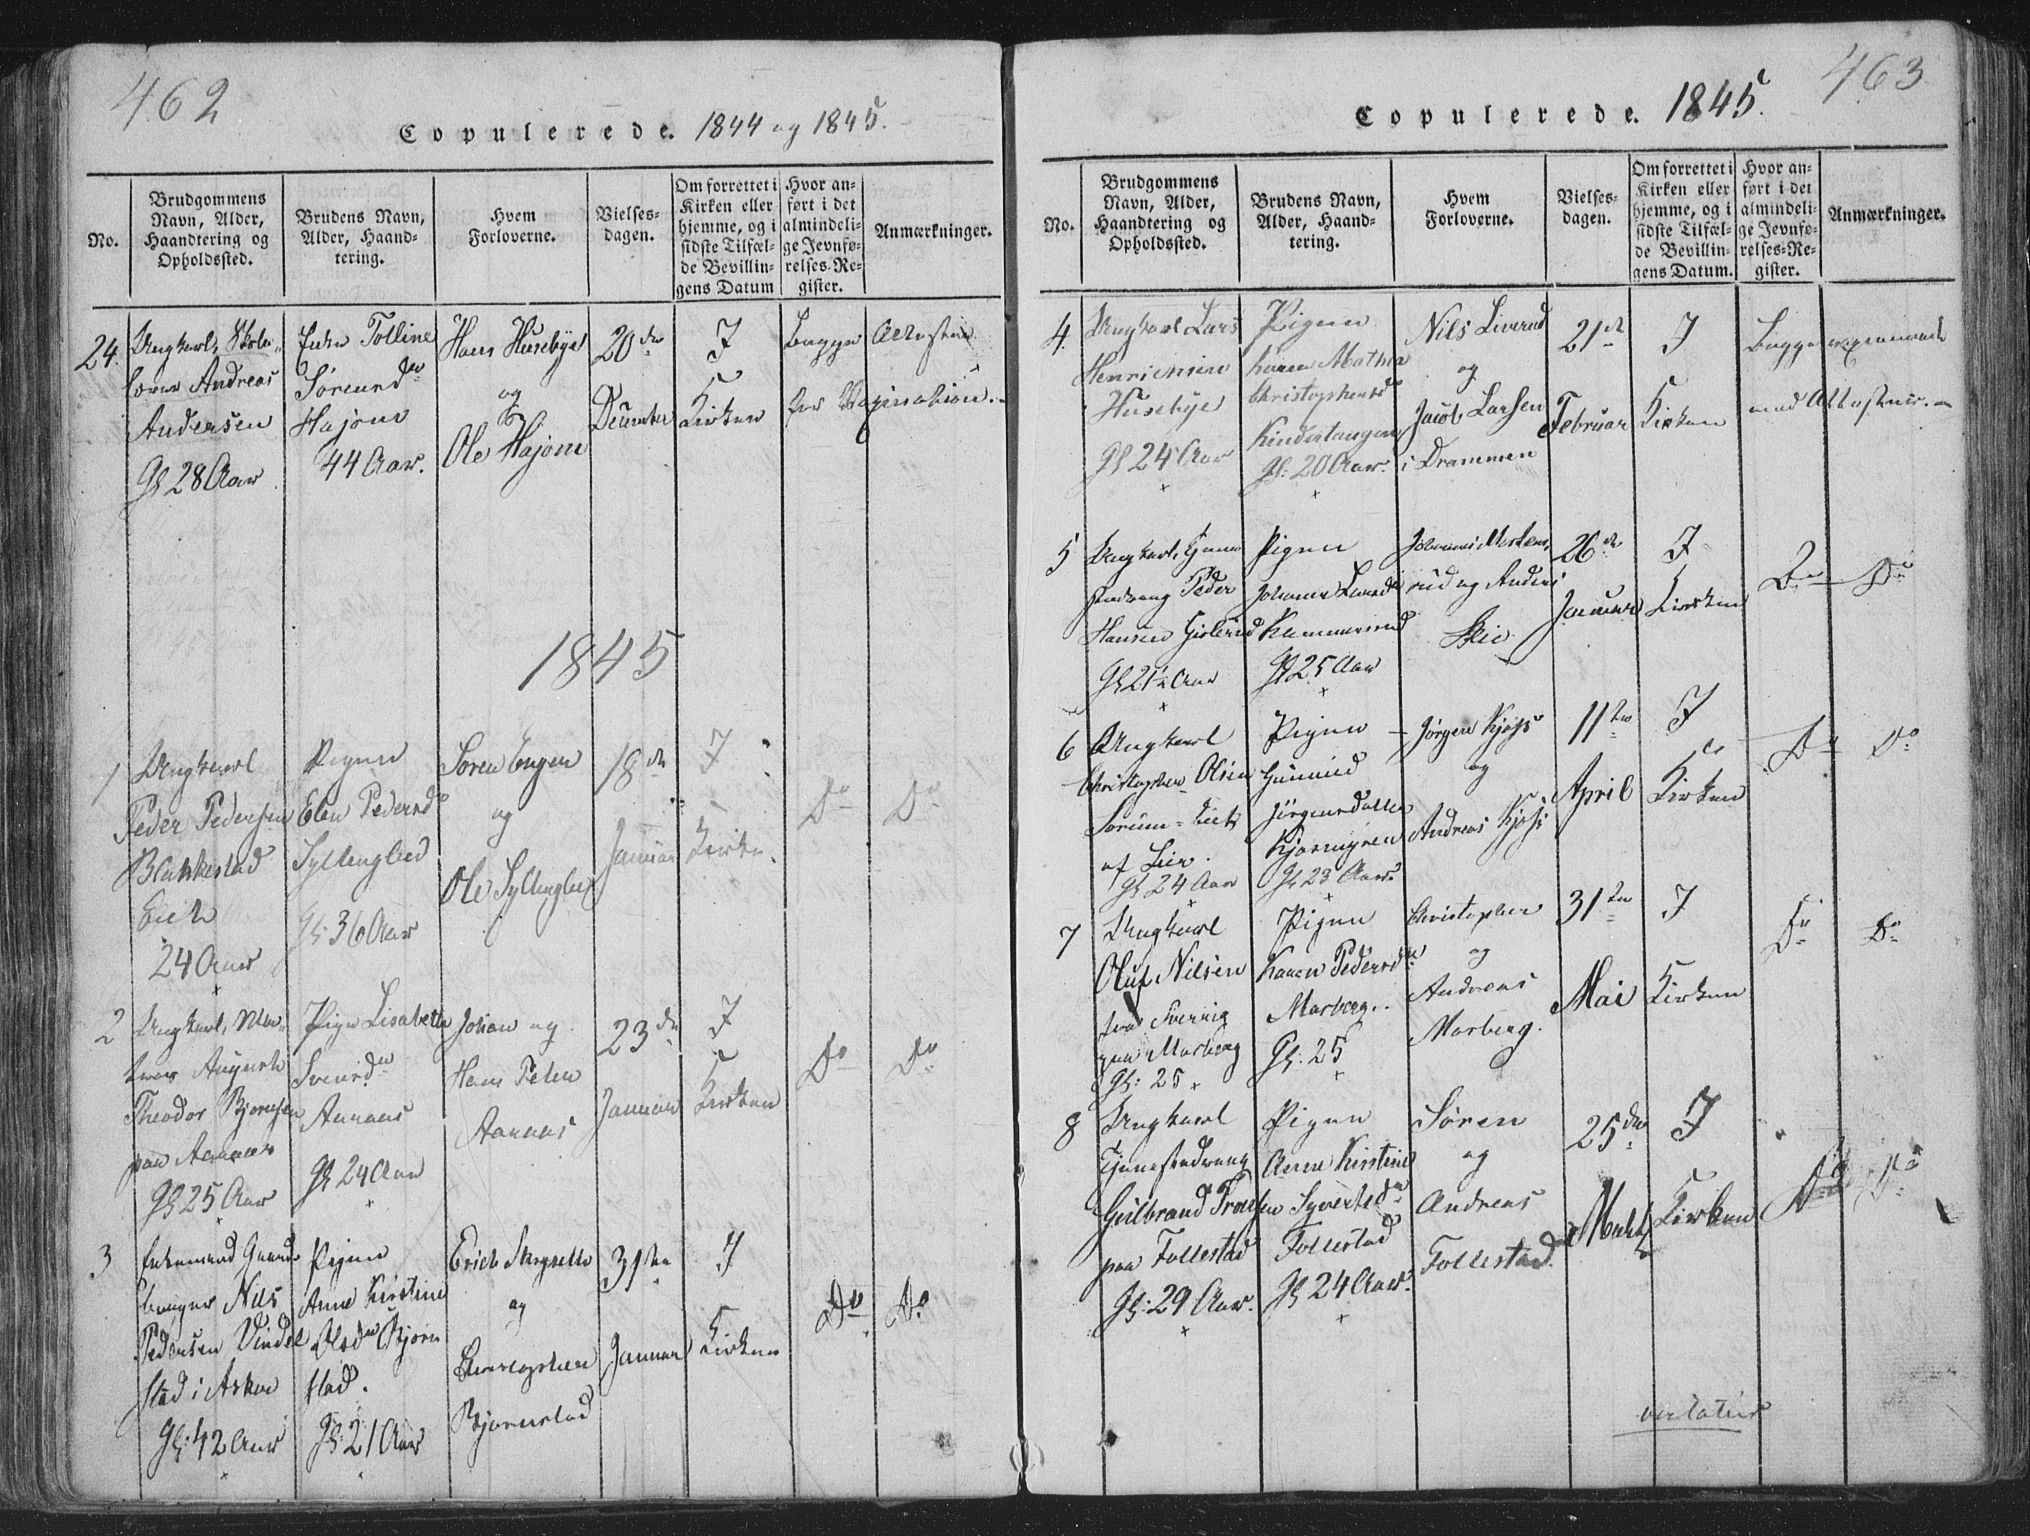 462
Copulerede. 1844 og 1845.
No.
Brudgommens Navn, Alder, Haandtering og Opholdssted.
Brudens Navn, Alder, Haandtering.
Hvem Forloverne.
Vielses-dagen.
Om forrettet i Kirken eller hjemme, og i sidste Tilfælde Bevillingens Datum
Hvor anført i det almindelige Jevnførelses-Register.
Anmærkninger.
24.
Ungkarl, Skole-
lærer Andreas
Andersen
Gl 28 Aar
Enke Tolline
Sørensdr
Hajom
44 Aar.
Hans Husebye
og
Ole Hajom
20de
December
I
Kirken
begge Attester
for Vaxination.
1845
1
Ungkarl
Peder Pedersen
Blakkestad
24 Aar
Pigen
Elen Pedersdr
Syllinglied
Gl: 36 Aar
Søren Engen
og
Ole Syllinglied
18de
Januar
I
Kirken.
Do
Do
2
Ungkarl,
August
Theodor Bjørnsen
paa Aanæs
Gl 25 Aar
Pige Lisabeth
Svensdr
Aanæs
Gl 24 Aar
Johan og
Hans Peder
Aanæs
23de
Januar
I
Kirken
Do
Do
3
Enkemand Gaard-
bruger Nils
Pedersen Vindel
stad i Asker
Gl: 42 Aar
Pigen
Anne Kirstine
Olsdr Bjørn
stad.
Gl: 21 Aar
Erich
og
Christopher
Bjørnstad
31te
Januar
I
Kirken
Do
Do
463
Copulerede. 1845.
No.
Brudgommens Navn, Alder, Haandtering og Opholdssted.
Brudens Navn, Alder, Haandtering.
Hvem Forloverne.
Vielses-dagen.
Om forrettet i Kirken eller hjemme, og i sidste Tilfælde Bevillingens Datum.
Hvor anført i det almindelige Jevnførelses-Register.
Anmærkninger.
4.
Ungkarl Lars
Henrichsen
Husebye
Gl 24 Aar
Pigen
Karen Mathia
Christophersdr
Kinderstangen
Gl: 20 Aar.
Nils Liverud
og
Jacob Larsen
i Drammen
21de
Februar
I
Kirken
Begge
med Attester.
5
Ungkarl, Tjene
stedreng Peder
Hansen Gislerud
Gl 21½ Aar
Pigen
Johanne Larsdr
Kammerud
Gl 25 Aar
Johannes
rud og Anders
Skie
26de
Januar
I
Kirken
Do
Do
6
Ungkarl
Christopher Olsen
Sørum
af Lier.
Gl 24 Aar
Pigen
Gunnild
Jørgensdatter
Kjørmyren
Gl 23 Aar.
Jørgen Kjøs
og
Andreas Kjøs
11te
April
I
Kirken
Do
Do
7
Ungkarl
Oluf Nilsen
fra Sverrig
paa Morberg
Gl: 25
Pigen
Karen Pedersdr
Morberg.
Gl: 25
Christopher
og
Andreas
Morberg.
31te
Mai
I
Kirken
Do
Do
8
Ungkarl
Tjenestedreng
Gulbrand Troelsen
paa Follestad
Gl: 29 Aar.
Pigen
Anne Kirstine
Syvertsdr
Follestad
Gl 24 Aar.
Søren
og
Andreas
Follestad.
25de
Marts
I
Kirken
Do
Do
vertatur